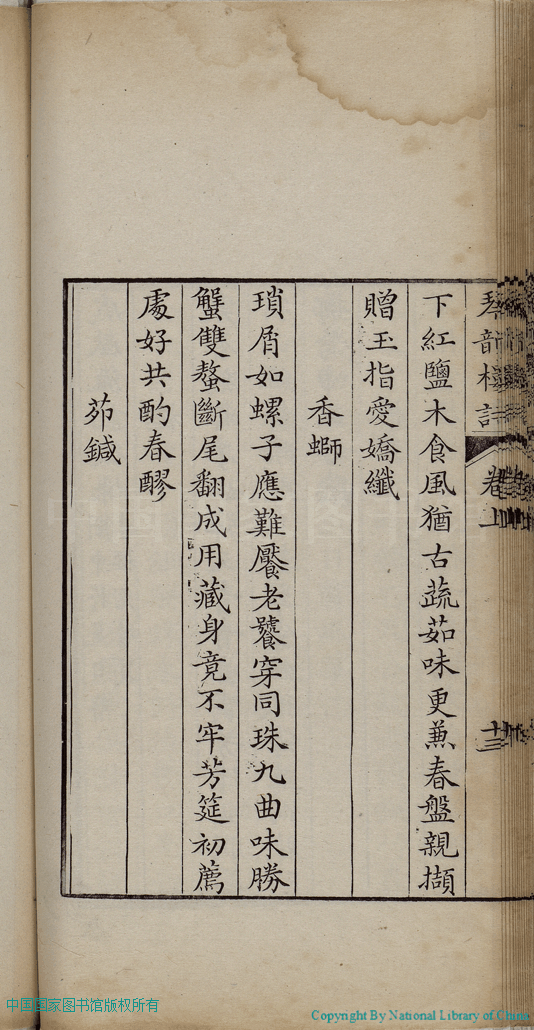 下紅鹽木食風猶古蔬茹味更兼春盤親擷
贈玉指愛嬌纖
香螄
瑣屑如螺子應難饜老饕穿同珠九曲味勝
蟹雙螯斷尾翻成用藏身竟不牢芳筵初薦
處好共酌春醪
茆鍼
卷上
十三
中国国家图书馆版权所有
Copyright By National Library of China